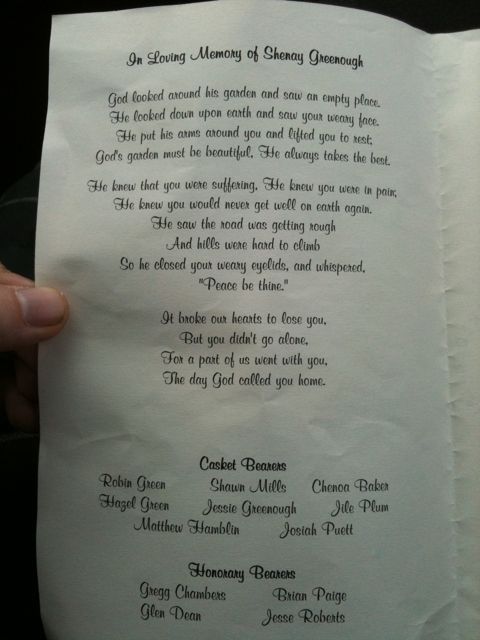 In Loving Memory of Shenay Greenough
God looked around his garden and saw an empty place.
He looked down upon earth and saw your weary face.
He put his arms around you and lifted you to rest;
God's garden must be beautiful, He always takes the best.
He knew that you were suffering, He knew you were in pain;
He knew you would never get well on earth again.
He saw the road was getting rough
And hills were hard to climb
So he closed your weary eyelids, and whispered,
"Peace be thine."
It broke our hearts to lose you,
But you didn't go alone,
For a part of us went with you,
The day God called you home.
Casket Bearers
Robin Green Shawn Mills Chenoa Baker
Hazel Green Jessie Greenough Jile Plum
Matthew Hamblin Josiah Puett
Honorary Bearers
Gregg Chambers Brian Paige
Glen Dean Jesse Roberts